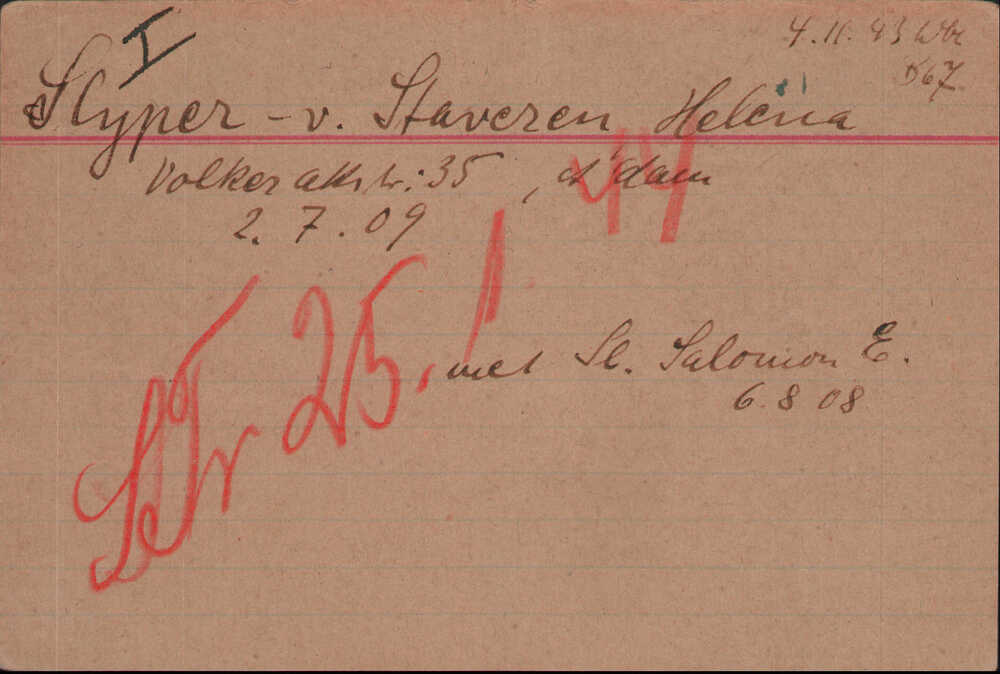 I
4.11.43 Wbr
D67
Slyper - v. Staveren Helena
Volkerakstr: 35, A'dam
2.7.09
Tr 25.1 44
met Sl. Salomon E.
6.8 08